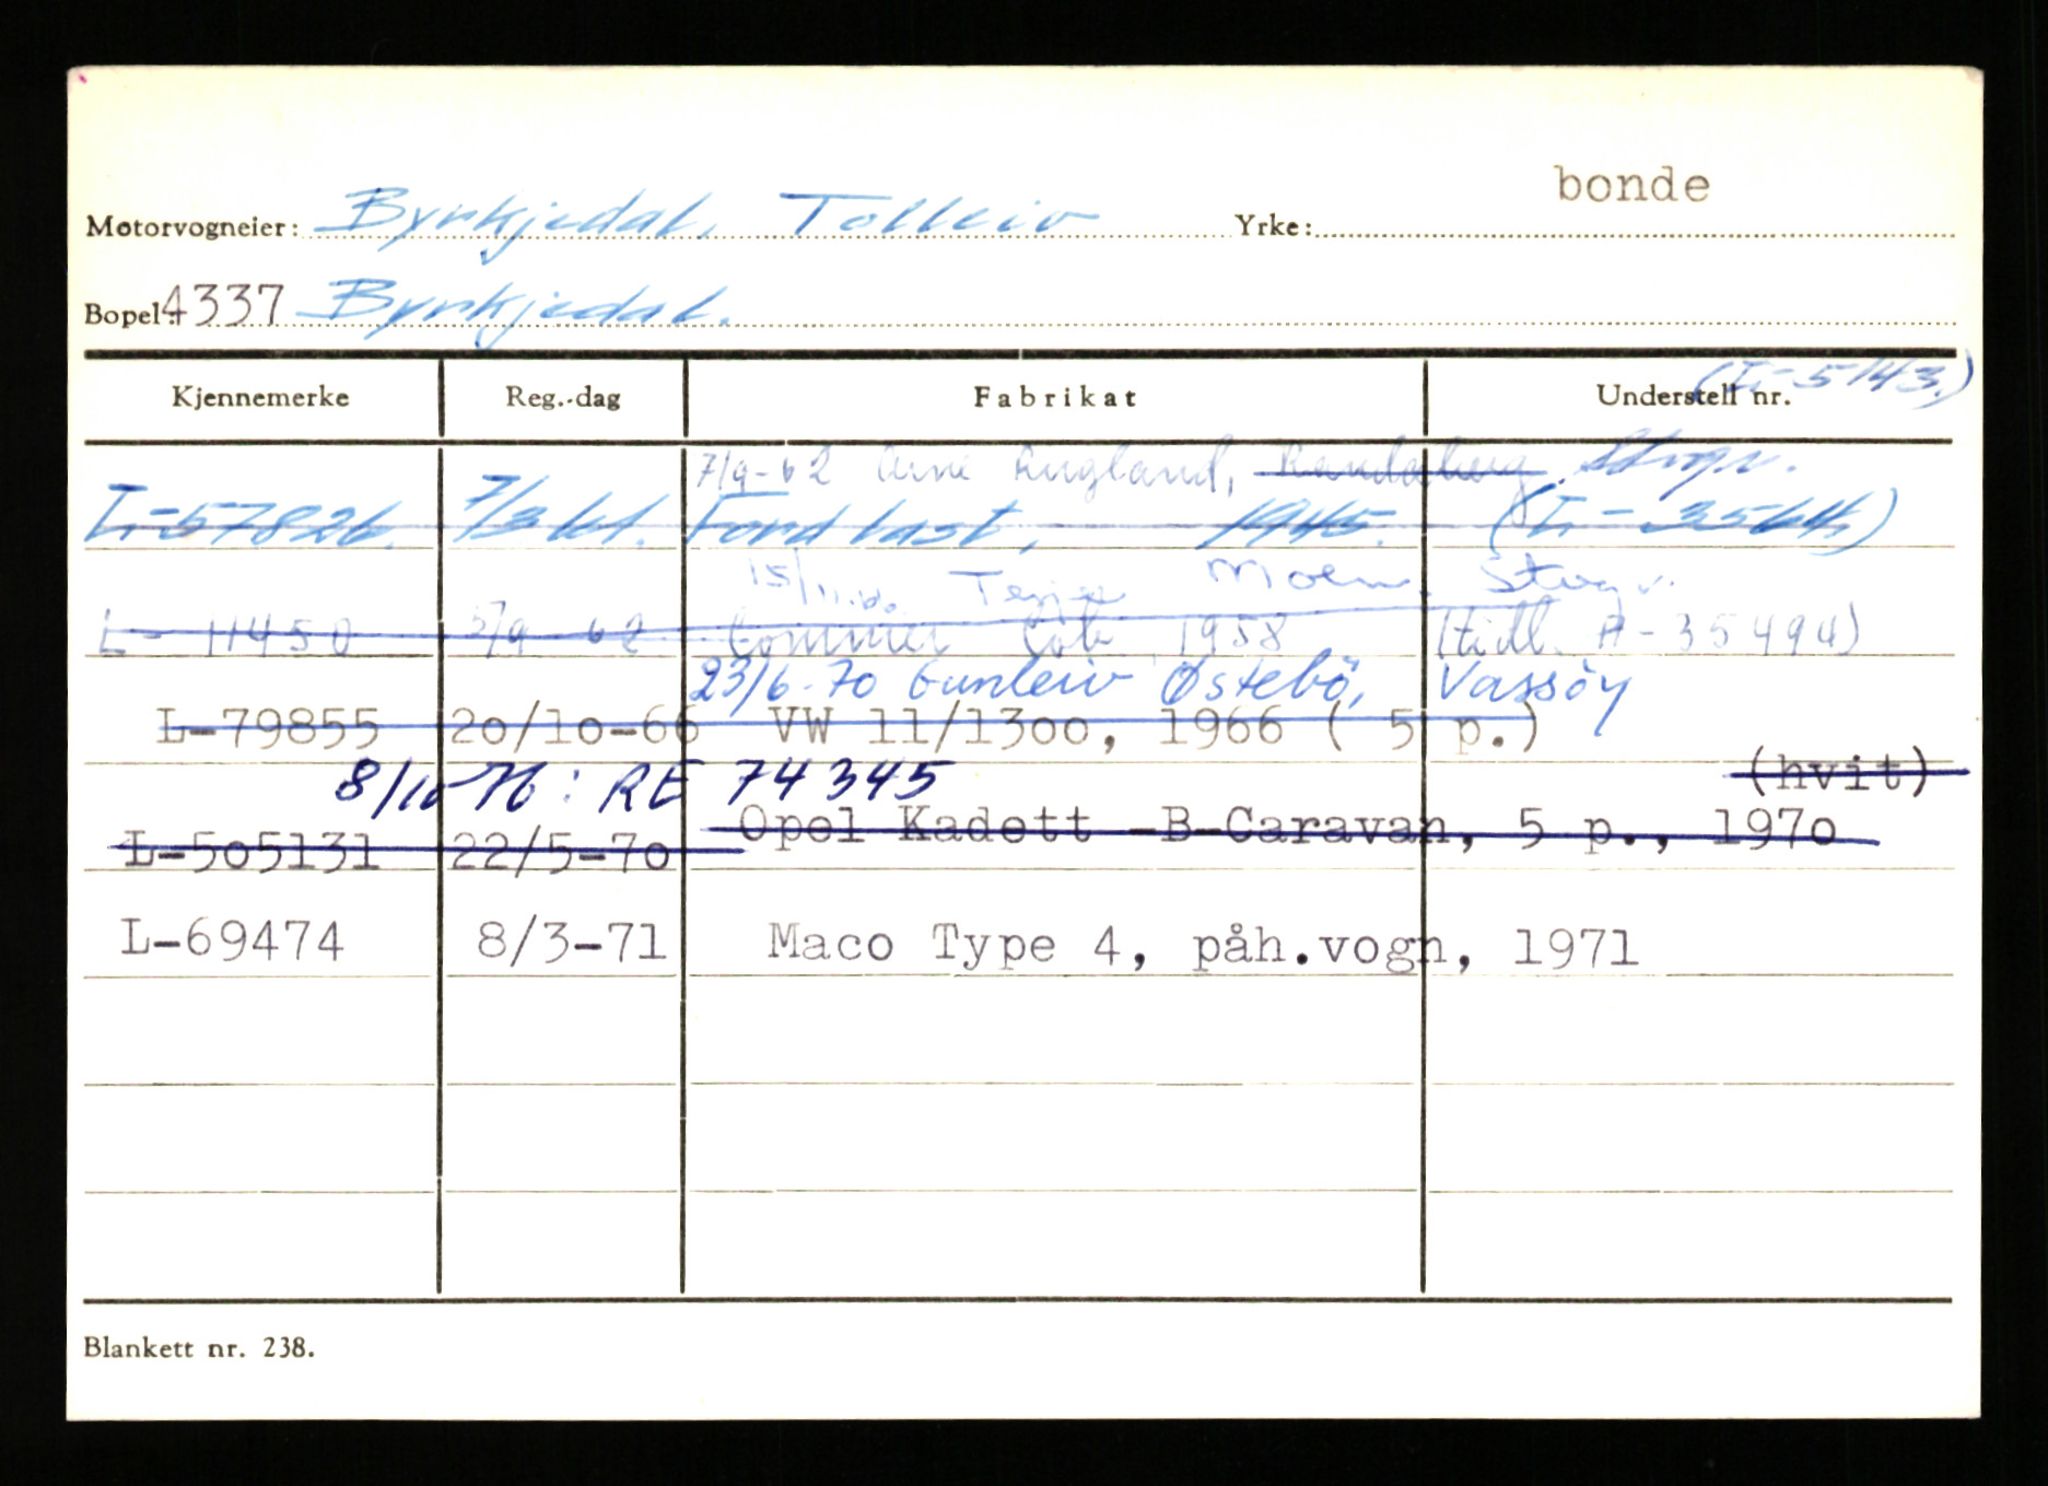 bonde
Motorvogneier: Byrkjedal, Tolleiv Yrke:
Bopel 4337 Byrkjedal.
(L-5143.)
Kjennemerke Reg.-dag Fabrikat Understell nr.
7/9-62 Arne England, Randaberg Stvgr.
L-57826. 7/3 61. Ford last, 1945. (L-3564)
15/11. Terje Moen, Stvgr.
L-11450 5/9 62 Commer Cob 1958 (tidl. A-35494)
23/6-70 Gunleiv Østebö, Vassöy
L-79855 20/10-66 VW 11/1300, 1966 ( 5 p.)
(hvit)
8/10-76: RE 74345
L-505131 22/5-70 Opel Kadett -B-Caravan, 5 p., 1970
L-69474 8/3-71 Maco Type 4, påh.vogn, 1971
Blankett nr. 238.